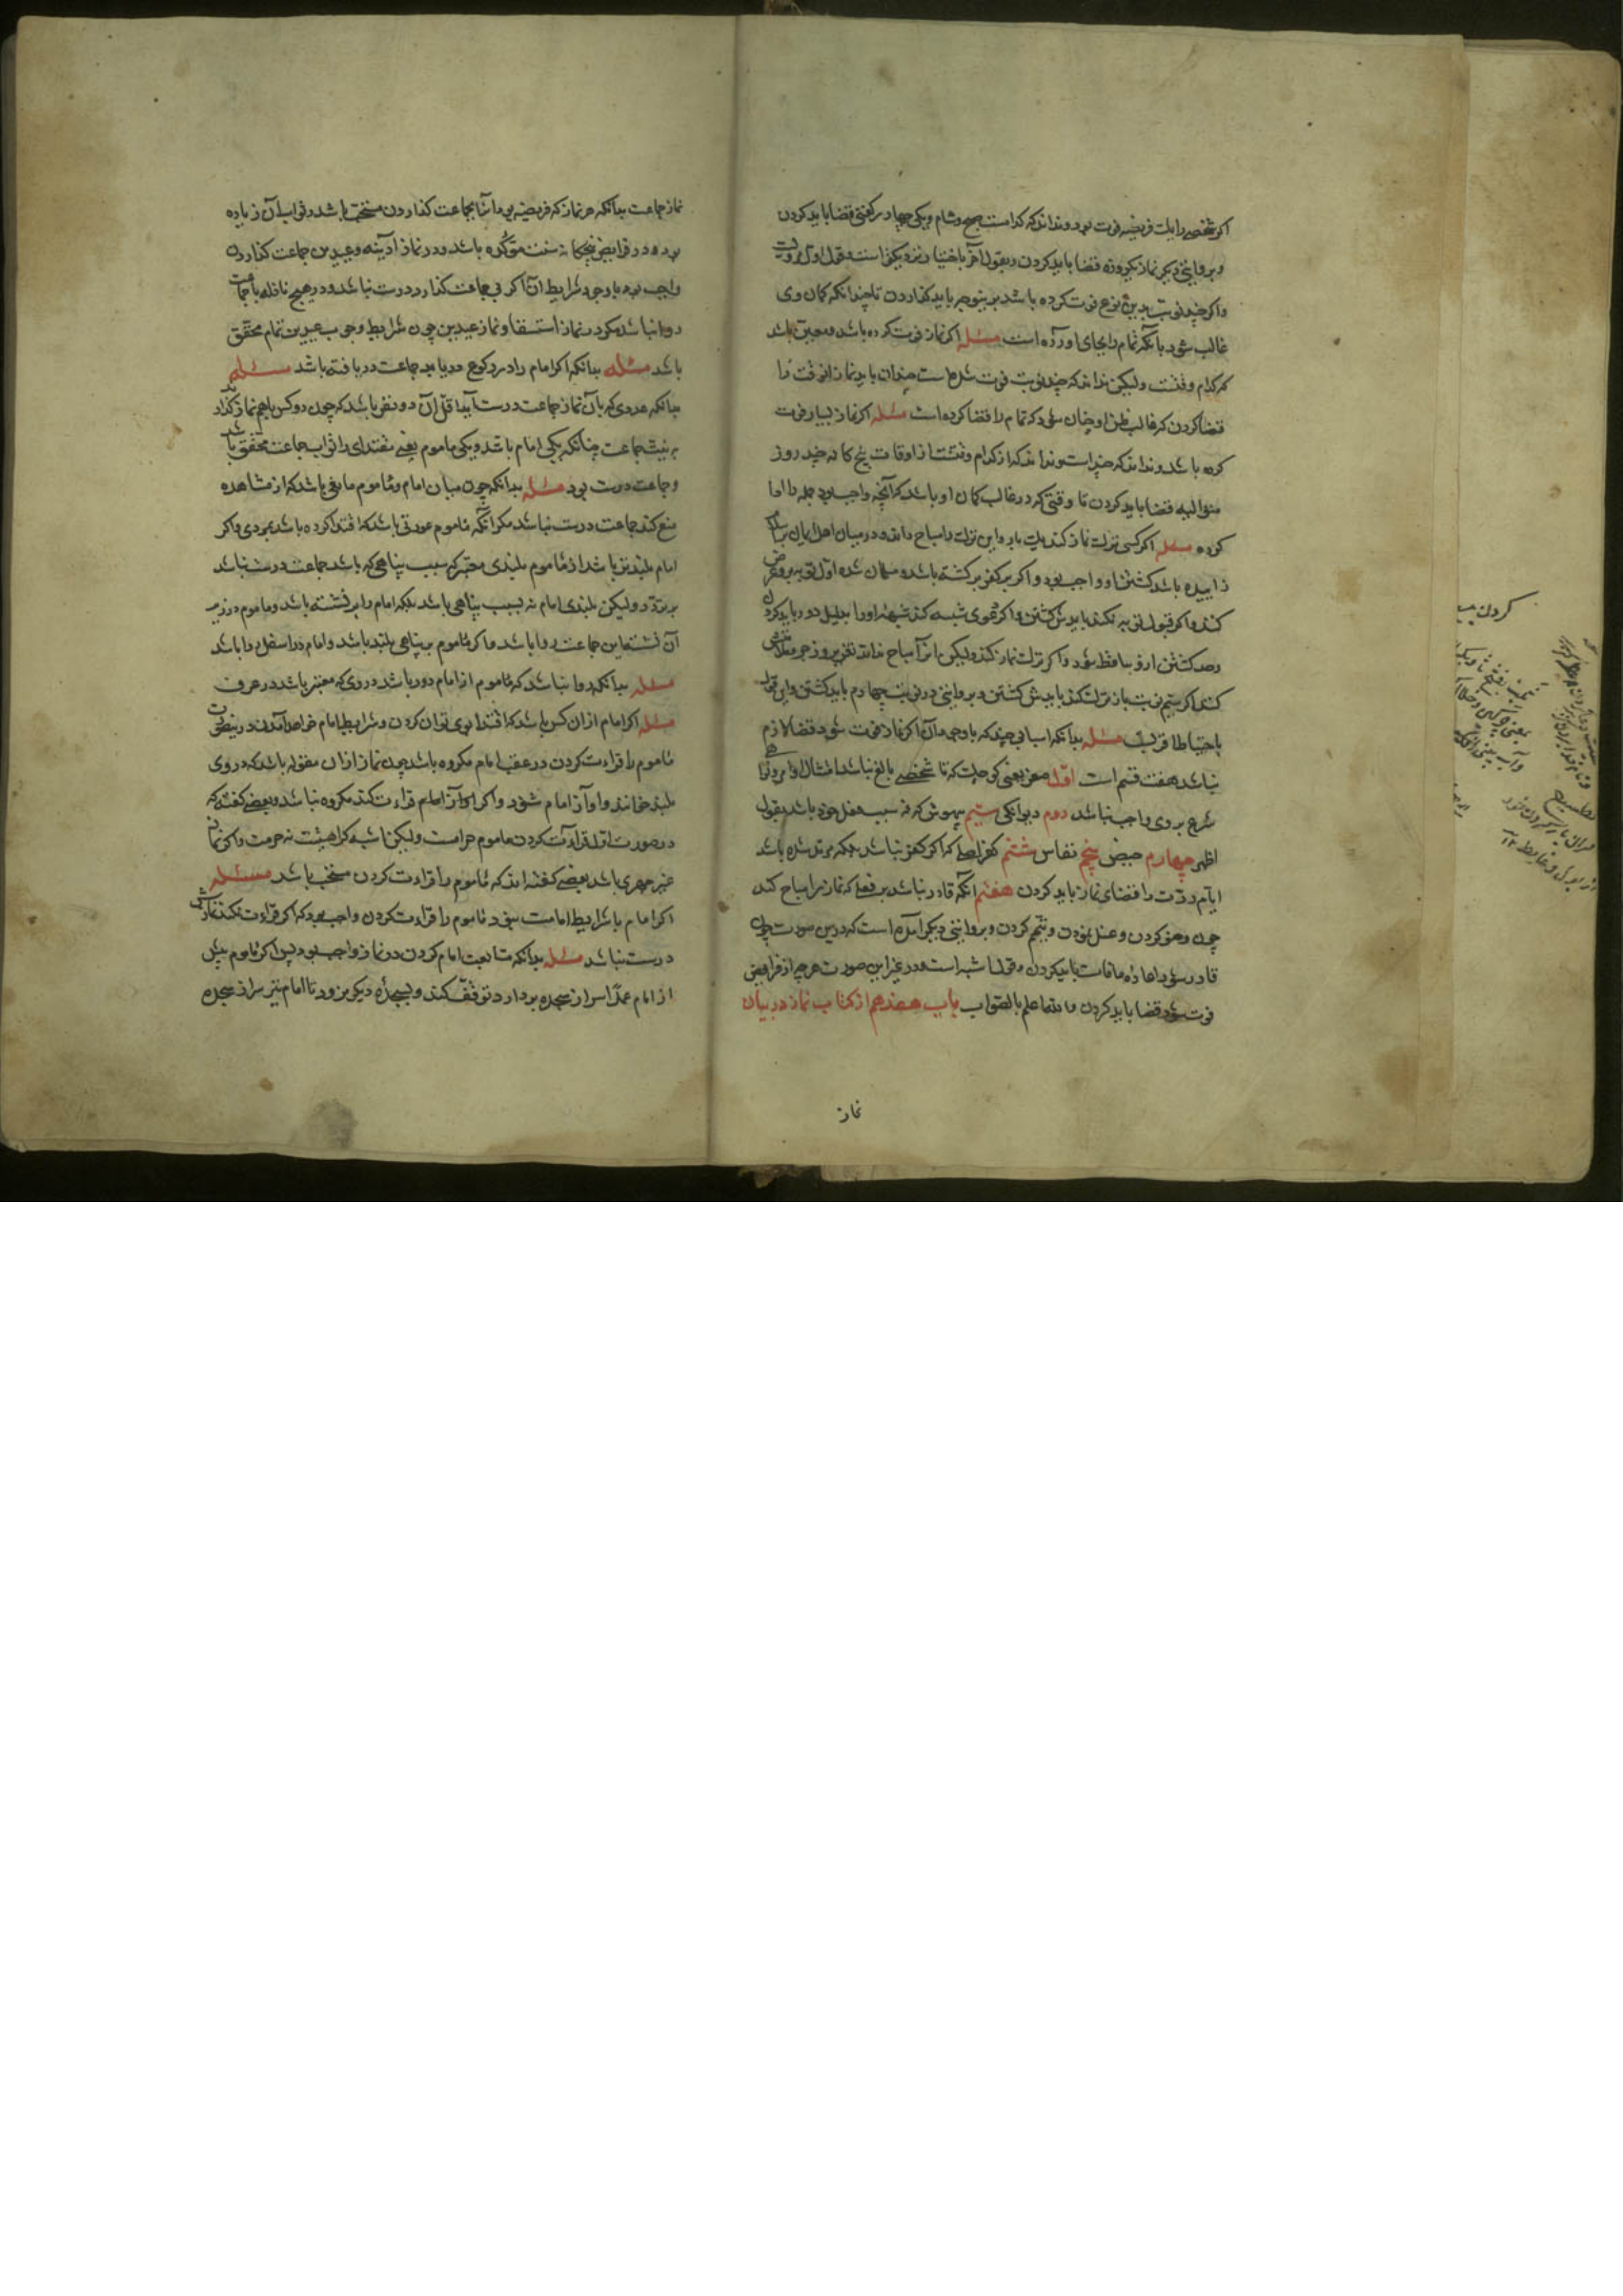 اگر شخصی را یک فریضه فوت بود و نداند که کدامست صبح و شام و یکی چهار رکعتی قضا باید کردن
و بروایتی دیگر نماز یکروزه قضا باید کردن و بقول آخر باختیار نزدیکتر است و قول اول
و اگر چند نوبت برین نوع فوت کرده باشد برینوجه باید گذاردن تا چندانکه گمان وی
غالب شود بآنکه تمام را بجای آورده است مسئله اگر نماز فوت کرده باشد و معین باشد
که کدام وقتست ولیکن نداند که چند نوبت فوت شده است چندان باید نماز آنوقت را
قضا کردن که غالب ظن او چنان شود که تمام را قضا کرده است مسئله اگر نماز بسیار فوت
کرده باشد و نداند که چند است و نداند که از کدام وقتست از اوقات پنج گانه چند روز
متوالیه قضا باید کردن تا وقتی که در غالب گمان او باشد که آنچه واجب بود جمله را ادا
کرده مسئله اگر کسی ترک نماز کند یک بار و این ترک را مباح داند و در میان اهل ایمان
زاییده باشد کشتن او واجب بود و اگر بر کفر برگشته باشد و مسلمان شده اول توبه برو عرض
کنند و اگر قبول توبه نکند بایدش کشتن و اگر دعوی شبه کند شبهه او را بدلیل دور باید کردن
و حد کشتن ازو ساقط شود و اگر ترک نماز کند ولیکن آنرا مباح نداند تعزیر و زجر
کنند اگر سیم نوبت باز ترک کند بایدش کشتن و بروایتی در نوبت چهارم باید کشتن و این قول
باحتیاط اقربست مسئله بدانکه اسبابی چند که با وجود آن اگر نماز فوت شود قضا لازم
نباشد هفت قسم است اول صغر یعنی کوچکست که تا شخصی بالغ نباشد امتثال اوامر و نواهی
شرع بر وی واجب نباشد دوم دیوانگی سیم بیهوشی که نه بسبب فعل خود باشد بقول
اظهر چهارم حیض پنجم نفاس ششم کفر اصلی که اگر کفر نباشد بلکه مرتد شده باشد
ایام ردت را قضای نماز باید کردن هفتم آنکه قادر نباشد بر فعلی که نماز را مباح کند
چون وضو کردن و غسل نمودن و تیمم کردن و بروایتی دیگر آمده است که درین صورت چون
قادر شود اعاده مافات باید کردن و قول اشبه است و در غیر این صورت هرچه از فرایض
فوت شود قضا باید کردن والله اعلم بالصواب باب هفدهم از کتاب نماز در بیان
نماز
نماز جماعت بدانکه هر نماز که فریضه بود آنرا بجماعت گذاردن مستحب باشد و ثواب آن زیاده
بود و در فرایض پنجگانه سنت مؤکده باشد و در نماز آدینه و عیدین جماعت گذاردن
واجب بود با وجود شرایط آن اگر بی جماعت گذارد درست نباشد و در هیچ نافله با جماعت
روا نباشد مگر در نماز استسقا و نماز عیدین چون شرایط وجوب عیدین تمام محقق
باشد مسئله بدانکه اگر امام را در رکوع دریابد جماعت دریافته باشد مسئله
بدانکه عددی که بآن نماز جماعت درست آید اقل آن دو نفر باشد که چون دو کس باهم نماز گذارند
به نیت جماعت چنانکه یکی امام باشد و یکی ماموم یعنی مقتدای را ثواب جماعت محقق باشد
و جماعت درست بود مسئله بدانکه چون میان امام و ماموم مانعی باشد که از مشاهده
منع کند جماعت درست نباشد مگر آنکه ماموم عورتی باشد که اقتدا کرده باشد بمردی و اگر
امام بلندتر باشد از ماموم بلندی معتبر که بسبب بناهی که باشد جماعت درست نباشد
بر تردد ولیکن بلندی امام نه بسبب بناهی باشد بلکه امام را بر فشته باشد و ماموم در زیر
آن فشته این جماعت روا باشد و اگر ماموم بر بناهی بلند باشد و امام در اسفل روا باشد
مسئله بدانکه روا نباشد که ماموم از امام دور باشد دوری که معتبر باشد در عرف
مسئله اگر امام از آن کس باشد که اقتدا بوی توان کردن و شرایط امام خواهد آمدن درینصورت
ماموم را قراءت کردن در عقب امام مکروه باشد چون نماز از آن مقوله باشد که در وی
بلند خوانند و آواز امام شنود و اگر آواز امام قراءت کند مکروه نباشد و بعضی گفته که
در صورت اول قراءت کردن ماموم حرامست ولیکن اشبه کراهیتست نه حرمت و اگر نماز
غیر جهری باشد بعضی گفته اند که ماموم را قراءت کردن مستحب باشد مسئله
اگر امام با شرایط امامت نبود ماموم را قراءت کردن واجب بود که اگر قراءت نکند نمازش
درست نباشد مسئله بدانکه متابعت امام کردن در نماز واجب بود پس اگر ماموم پیش
از امام عمداً سر از سجده بردارد توقف کند و بسجده دیگر نرود تا امام نیز سر از سجده
کردن